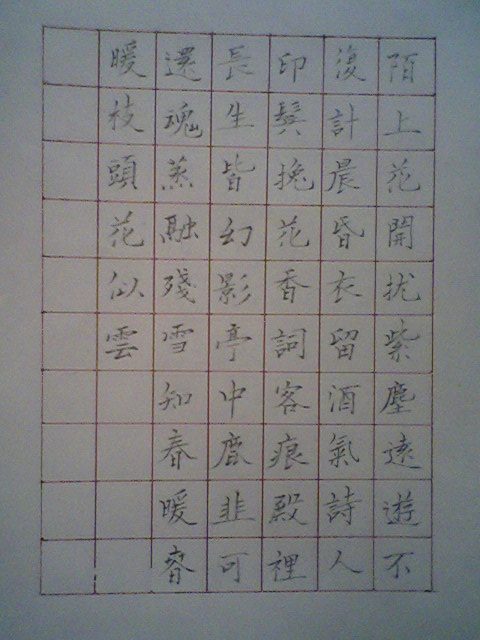 陌上花開扰紫塵遠遊不
復計晨昏衣留酒氣詩人
印鬓挽花香詞客痕殿裡
長生皆幻影亭中鹿韭可
還魂蒸融殘雪知春暖
暖枝頭花似雲